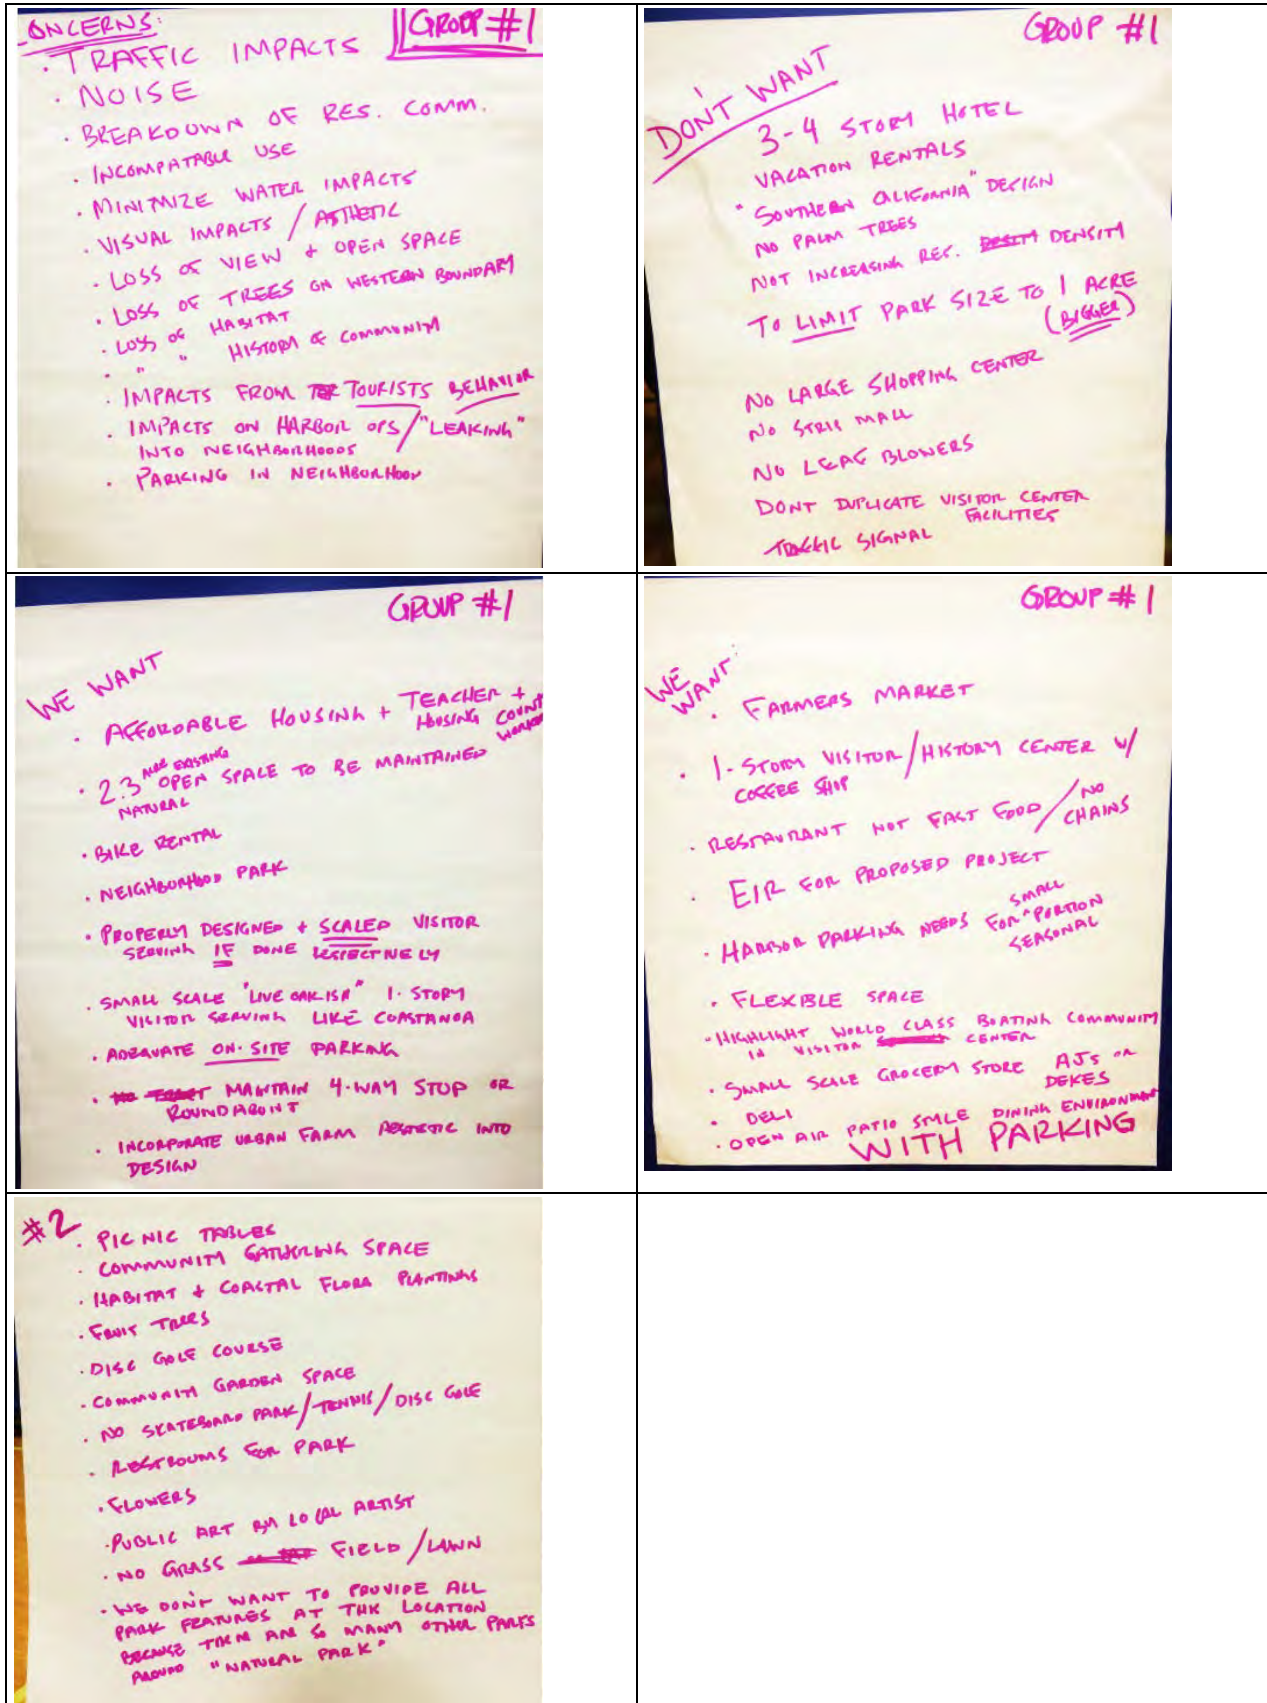 CONCERNS:
GROUP #1
· TRAFFIC IMPACTS
· NOISE
· BREAKDOWN OF RES. COMM.
· INCOMPATABLE USE
· MINIMIZE WATER IMPACTS
· VISUAL IMPACTS / ASTHETIC
· LOSS OF VIEW + OPEN SPACE
· LOSS OF TREES ON WESTERN BOUNDARY
· LOSS OF HABITAT
· " " HISTORY OF COMMUNITY
· IMPACTS FROM TOURISTS BEHAVIOR
· IMPACTS ON HARBOR OPS / "LEAKING"
INTO NEIGHBORHOODS
· PARKING IN NEIGHBORHOOD
GROUP #1
DON'T WANT
3-4 STORY HOTEL
VACATION RENTALS
"SOUTHERN CALIFORNIA" DESIGN
NO PALM TREES
NOT INCREASING RES. DENSITY
TO LIMIT PARK SIZE TO 1 ACRE
(BIGGER)
NO LARGE SHOPPING CENTER
NO STRIP MALL
NO LEAF BLOWERS
DONT DUPLICATE VISITOR CENTER
FACILITIES
TRAFFIC SIGNAL
GROUP #1
WE WANT
· AFFORDABLE HOUSING + TEACHER +
HOUSING COUNT
· 2.3 ACRE EXISTING OPEN SPACE TO BE MAINTAINED
NATURAL
· BIKE RENTAL
· NEIGHBORHOOD PARK
· PROPERLY DESIGNED + SCALED VISITOR
SERVING IF DONE
· SMALL SCALE "LIVE OAKISH" 1-STORY
VISITOR SERVING LIKE COASTANOA
· ADEQUATE ON-SITE PARKING
· MAINTAIN 4-WAY STOP OR
ROUNDABOUT
· INCORPORATE URBAN FARM AESTETIC INTO
DESIGN
GROUP #1
WE WANT:
· FARMERS MARKET
· 1-STORY VISITOR/HISTORY CENTER W/
COFFEE SHOP
· RESTAURANT NOT FAST FOOD / NO
CHAINS
· EIR FOR PROPOSED PROJECT
· HARBOR PARKING NEEDS FOR ^SMALL PORTION
SEASONAL
· FLEXIBLE SPACE
· HIGHLIGHT WORLD CLASS BOATING COMMUNITY
IN VISITOR CENTER
· SMALL SCALE GROCERY STORE AJS OR
DEKES
· DELI
· OPEN AIR PATIO STYLE DINING ENVIRONMENT
WITH PARKING
#2
· PICNIC TABLES
· COMMUNITY GATHERING SPACE
· HABITAT + COASTAL FLORA PLANTINGS
· FRUIT TREES
· DISC GOLF COURSE
· COMMUNITY GARDEN SPACE
· NO SKATEBOARD PARK / TENNIS / DISC GOLF
· RESTROOMS FOR PARK
· FLOWERS
· PUBLIC ART BY LOCAL ARTIST
· NO GRASS FIELD / LAWN
· WE DON'T WANT TO PROVIDE ALL
PARK FEATURES AT THE LOCATION
BECAUSE THERE ARE SO MANY OTHER PARKS
AROUND "NATURAL PARK"